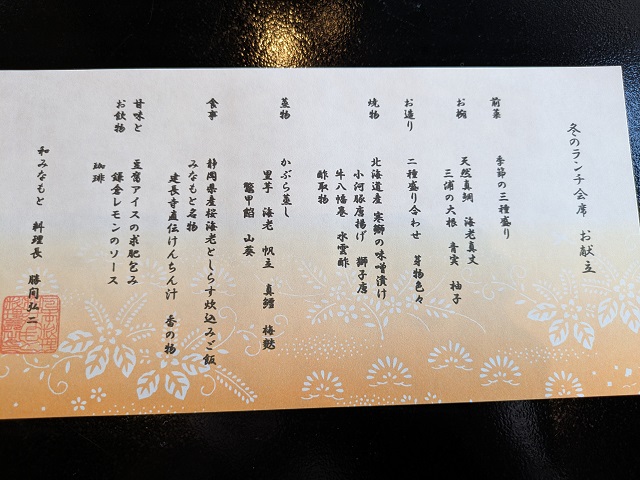 冬のランチ会席 お献立
前菜 季節の三種盛り
お椀 天然真鯛 海老真丈
三浦の大根 青実 柚子
お造り 二種盛り合わせ 芽物色々
焼物 北海道産 寒鰤の味噌漬け
小河豚唐揚げ 獅子唐
牛八幡巻 水雲酢
酢取物
蒸物 かぶら蒸し
里芋 海老 帆立 真鱈 梅麩
鼈甲餡 山葵
食事 静岡県産桜海老としらす炊込みご飯
みなもと名物
建長寺直伝けんちん汁 香の物
甘味と 豆富アイスの求肥包み
お飲物 鎌倉レモンのソース
珈琲
和みなもと 料理長 勝間弘二